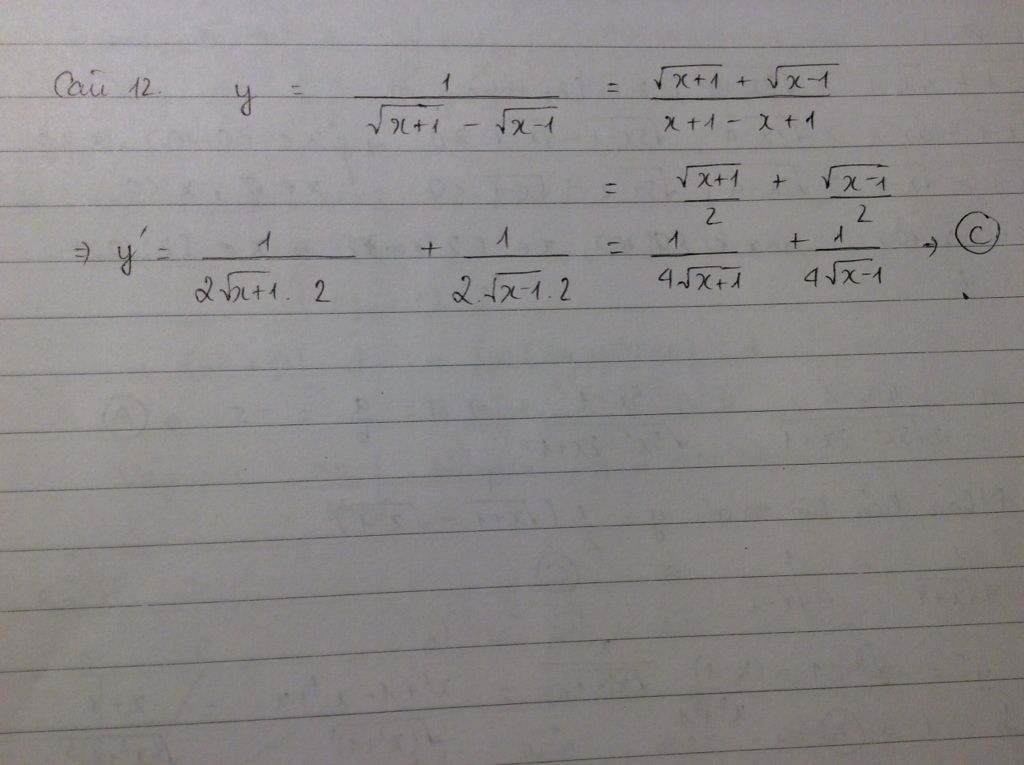 Câu 12. y = 1/(√(x+1) - √(x-1)) = (√(x+1) + √(x-1))/(x+1-x+1)
= √(x+1)/2 + √(x-1)/2
⇒ y' = 1/(2√(x+1) . 2) + 1/(2.√(x-1) . 2) = 1/(4√(x+1)) + 1/(4√(x-1)) → C